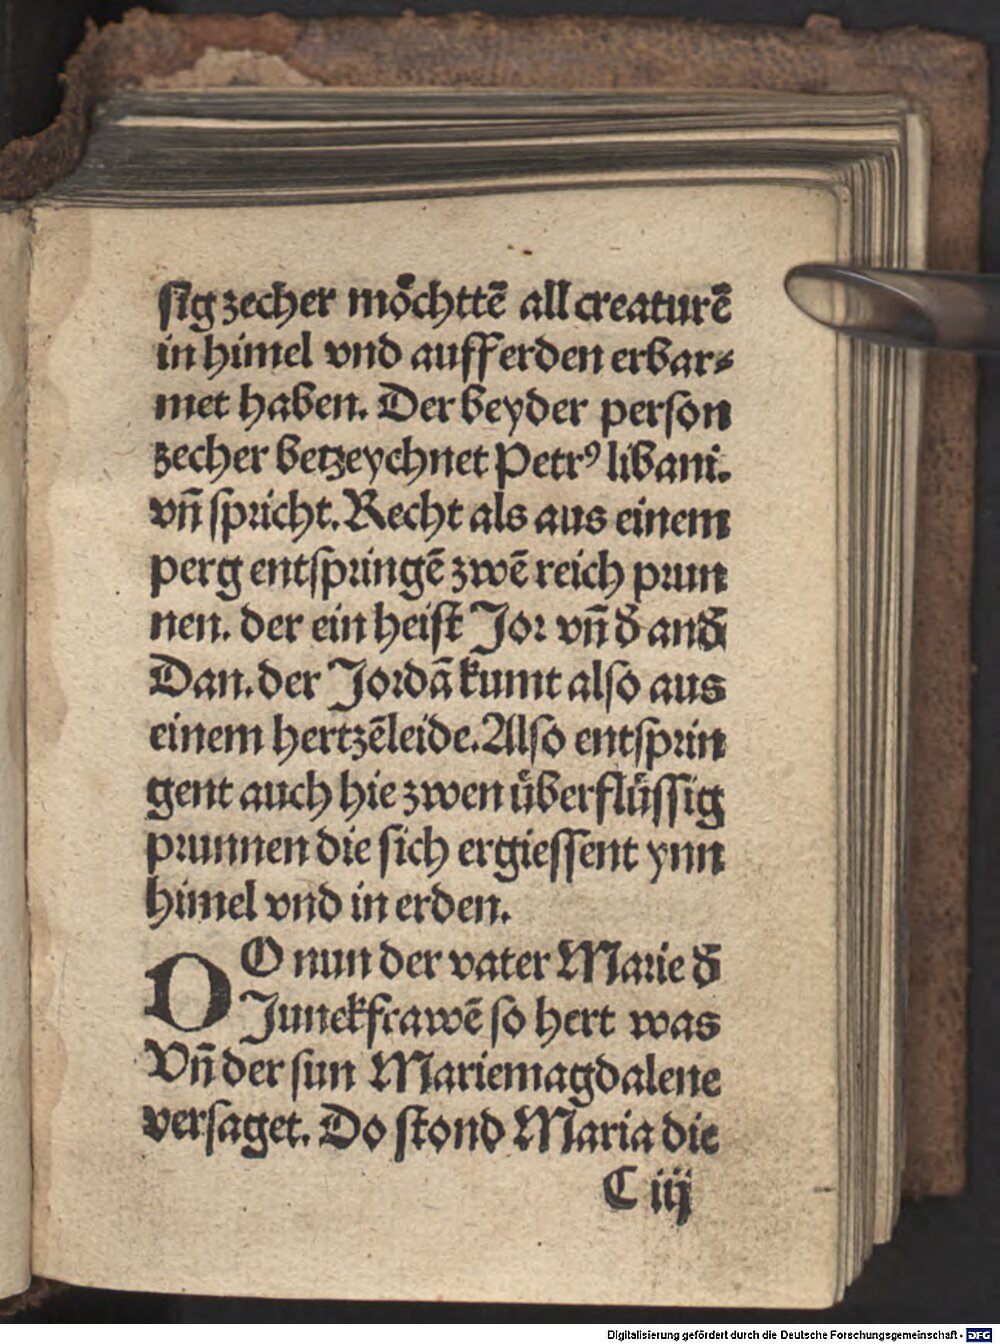 sig zecher möchttē all creaturē
in himel vnd auff erden erbar⸗
met haben. Der beyder person
zecher betzeychnet Petrꝰ libani.
vn̄ spricht. Recht als aus einem
perg entspringē zwē reich prun
nen. der ein heist Jor vn̄ d̄ and̄
Dan. der Jordā kumt also aus
einem hertzēleide. Also entsprin
gent auch hie zwen üͤberflüͤssig
prunnen die sich ergiessent ynn
himel vnd in erden.
DO nun der vater Marie d̄
Junckfrawē so hert was
Vn̄ der sun Mariemagdalene
versaget. Do stond Maria die
C iij
Digitalisierung gefördert durch die Deutsche Forschungsgemeinschaft - DFG